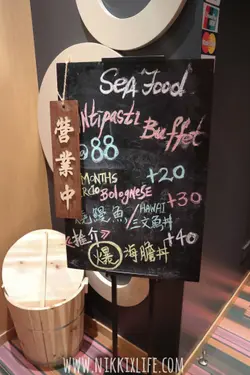 Sea Food
Antipasti
Buffet
@88
MONTHS +20
Bolognese +30
鰻魚/HAWAI
三文魚丼 +40
推介》
爆 海膽丼
營業中
WWW.NIKKIXLIFE.COM